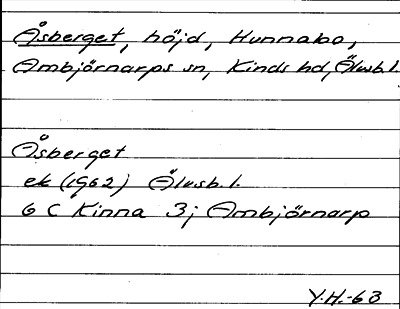 Åsberget, höjd, Hunnabo,
Ambjörnarps sn, Kinds hd, Älvsb.l.
Åsberget
ek (1962) Älvsb.l.
6 C Kinna 3j Ambjörnarp
Y.H.-63